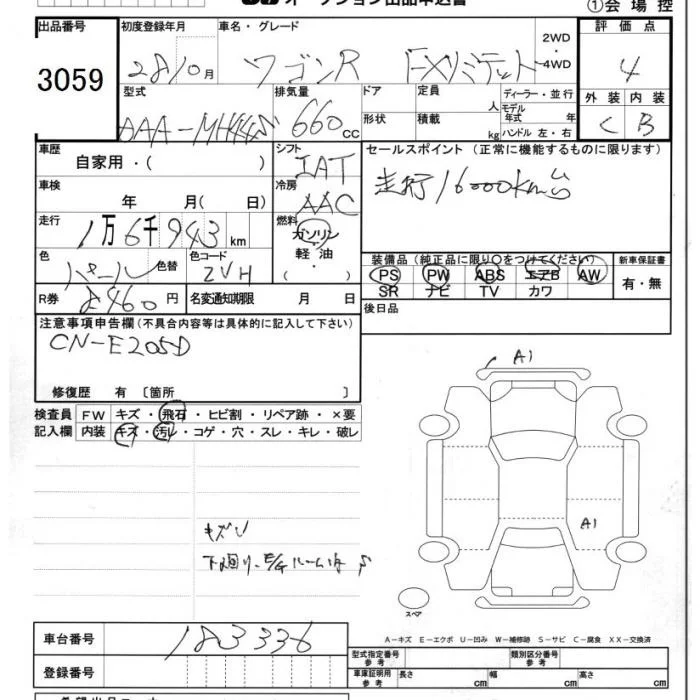 オークション出品申込書
①会場控
出品番号
3059
初度登録年月
28 10月
車名・グレード
ワゴンR FXリミテット
2WD・4WD
評価点
4
外装 内装
C B
型式
AAA-MH44S
排気量
660cc
ドア
形状
定員 人
積載 kg
ディーラー・並行
モデル年式 年
ハンドル 左・右
車歴
自家用・( )
シフト
IAT
セールスポイント (正常に機能するものに限ります)
走行16000km台
車検
年 月( 日)
冷房
AAC
走行
1万6千943km
燃料
ガソリン
軽油
( ・ )
色
パール
色替
色コード
ZVH
装備品 (純正品に限り○をつけてください)
PS PW ABS エアB AW
SR ナビ TV カワ
新車保証書
有・無
R券
8460円
名変通知期限 月 日
後日品
注意事項申告欄 (不具合内容等は具体的に記入して下さい)
CN-E205D
修復歴 有 〔箇所 〕
検査員 FW キズ・飛石・ヒビ割・リペア跡・×要
記入欄 内装 キズ・汚レ・コゲ・穴・スレ・キレ・破レ
A1
A1
キズ
下廻り
スペア
車台番号
183336
A-キズ E-エクボ U-凹み W-補修跡 S-サビ C-腐食 XX-交換済
登録番号
型式指定番号 参考
類別区分番号 参考
車庫証明用 参考
長さ cm
幅 cm
高さ cm